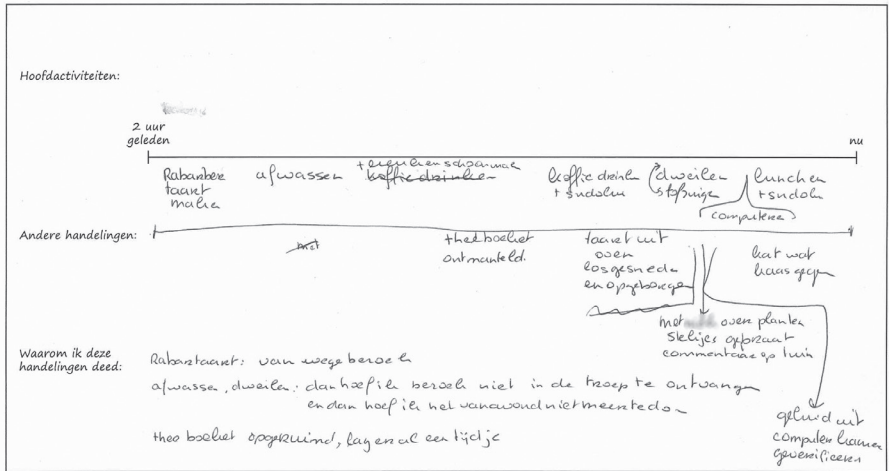 Hoofdactiviteiten:
2 uur
geleden
nu
Rabarber
taart
maken
afwassen
koffiedrinken
koffie drinken
+ sudoku
dweilen
stofzuigen
lunchen
+ sudoku
computeren
Andere handelingen:
met
+ theeboeket
ontmanteld.
taart uit
oven
losgesneden
en opgeborgen
kat wat
kaas gegeven
met over planten
stekjes gepraat
commentaar op tuin
geluid uit
computer kamer
geverifieerd
Waarom ik deze
handelingen deed:
Rabartaart: van wege bezoek
afwassen, dweilen: dan hoef ik bezoek niet in de troep te ontvangen
en dan hoef ik het vanavond niet meer te doen
theeboeket opgeruimd, lag er al een tijdje